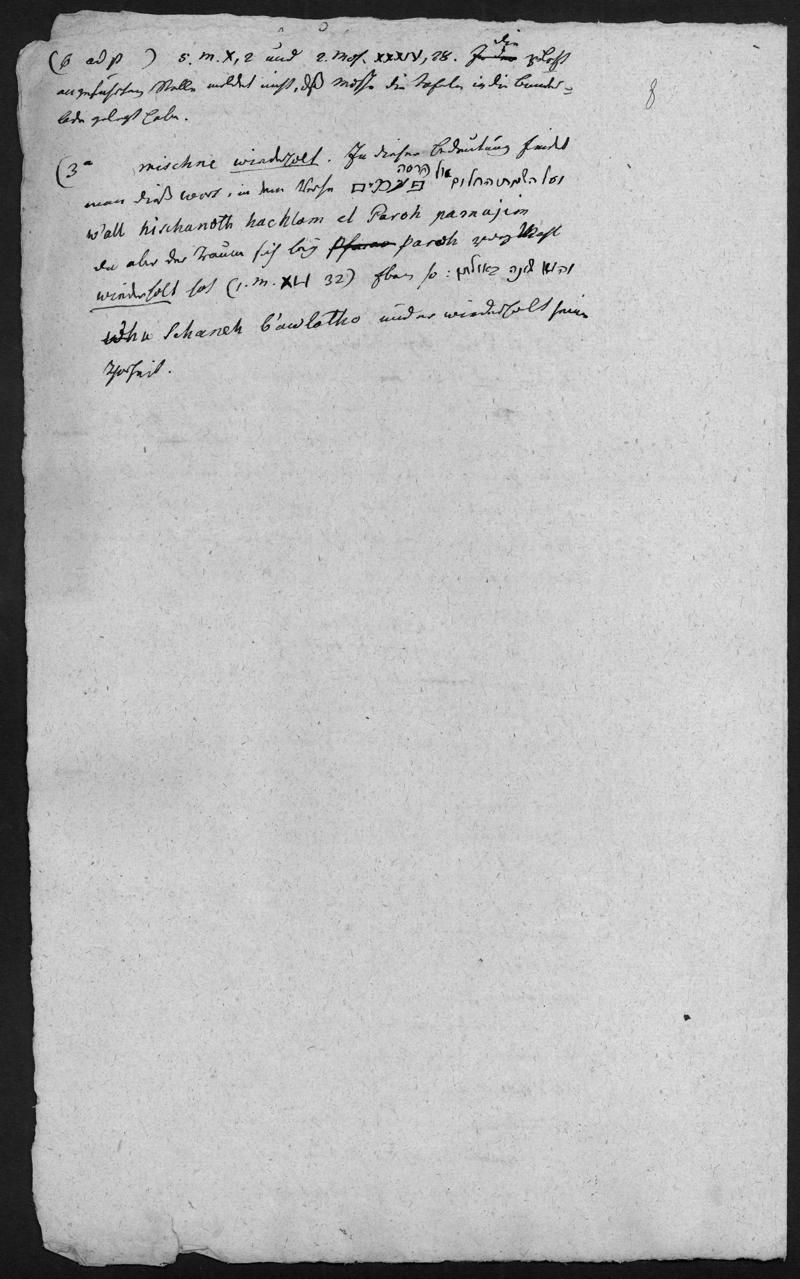 (6 ad p ) 5. M. X, 2 und 2. Mos. XXXIV, 28. den zuletzt
angeführten Stellen meldet nicht, daß Mosse die Tafeln in die Bundes=
lade gelegt habe.
8
(3a mischne wiederholt. In dieser Bedeutung findet
man dieß Wort, in dem Verse ועל השנות החלום אל פרעה פעמים
w'all hischanoth hachlom el Paroh paamajim
da aber der Traum sich bey Pharao Paroh zwey Mahl
wiederholt hat (1. M. XLI 32) Eben so: באולתו
Schoneh b'awlatho und er wiederholt seine
Thorheit.